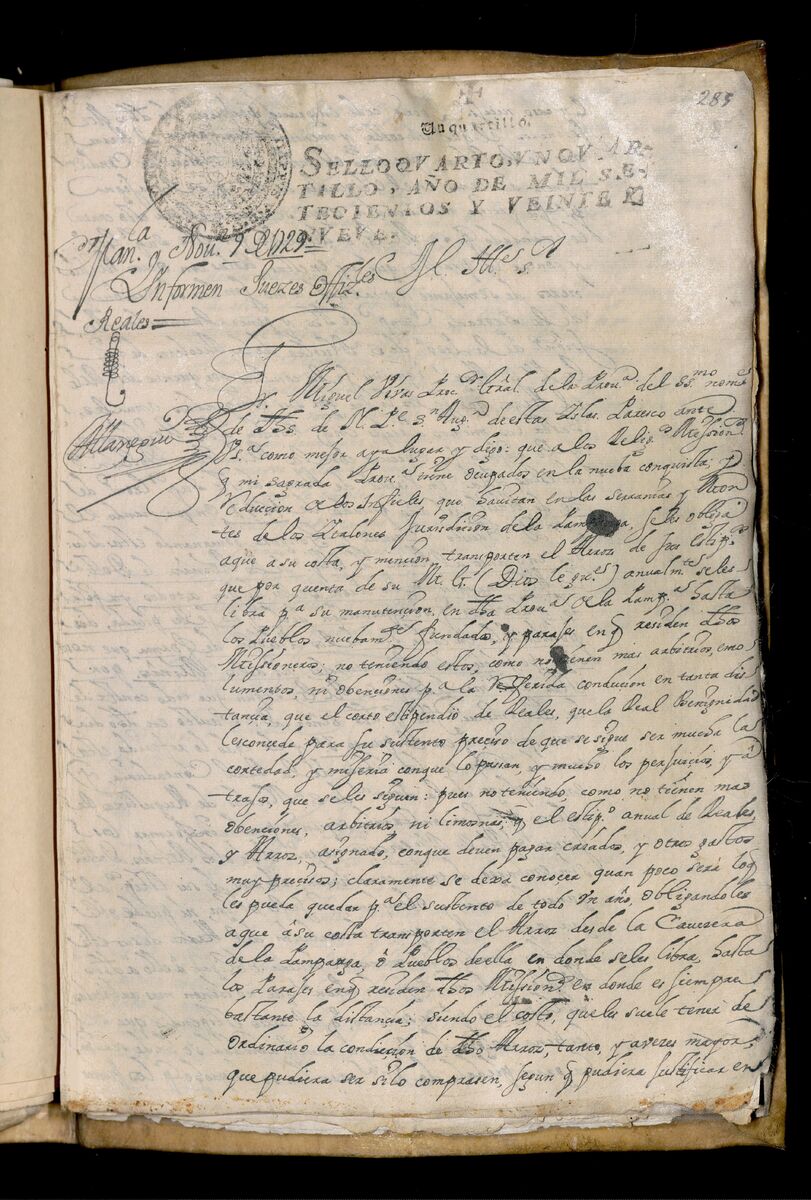 285
Un quartillo.
SELLO QVARTO, VN QVAR-
TILLO, AÑO DE MIL SE-
TECIENTOS Y VEINTE Y
NVEVE.
Man.la y Nov.e 9 de 729
Informen Juezes Offiz.les
Reales
M. Ill.e S.r
Fr. Miguel Vivas Proc.r Gral. de la Prov.a del SS.mo nom.e
de Jhs de N. P.e S.n Aug.n de estas Islas. Paresco ante
V.S.a como mejor aya lugar y digo: que a los Relig.s Mission.s
q mi sagrada Prov.a tiene ocupados en la nueba conquista, y
Reduccion de los Infieles que havitan en las serranias, y Mon
tes de los Italones Jurisdicion de la Pampanga, se les obliga
a que a su costa, y mencion, transporten el Arroz de sus estip.s
que por quenta de su M. (Dios le g.e) anualm.te se les
libra p.a su manutencion, en dha Prov.a de la Pamp.a hasta
los Pueblos nuebam.te fundados, y parajes en q residen dhos
Missioneros; no teniendo estos, como no tienen mas arbitrios, emo
lumentos, ni obenciones p.a la Referida conducion en tanta dis
tancia, que el corto estipendio de Reales, que la Real Benignidad
les concede para su sustento preciso de que se sigue ser mucha la
cortedad, y miseria con que lo pasan, y mucho los perjuicios, y a
trasos, que se les siguen: pues no teniendo como no tienen mas
obenciones, arbitrios, ni limosnas, q el estip.o anual de Reales,
y Arroz, asignado, con que deven pagar criados, y otros gastos
muy precisos; claramente se dexa conocer quan poco será lo q
les pueda quedar p.a el sustento de todo un año, obligandoles
a que á su costa transporten el Arroz desde la Cavezera
de la Pampanga, ó Pueblos de ella en donde se les libra, hasta
los Parajes en q residen dhos Mission.s en donde es siempre
bastante la distancia; siendo el costo, que les suele tener de
ordinario la conducion de dho Arroz, tanto, y a vezes mayor,
que pudiera ser si lo comprasen, segun q pudiera justificar en